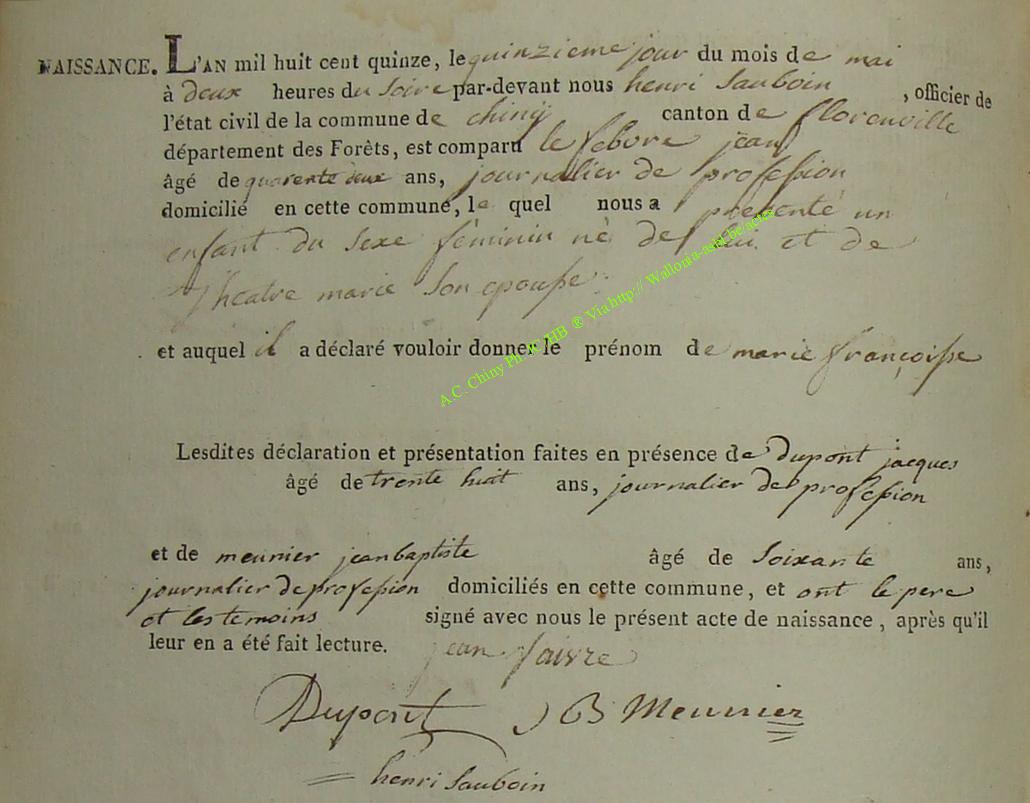 NAISSANCE. L'AN mil huit cent quinze, le quinzieme jour du mois de mai
à deux heures du Soire par-devant nous henri Sauboin , officier de
l'état civil de la commune de chiny canton de florenville
département des Forêts, est comparu le febvre jean
âgé de quarente deux ans, journalier de profession
domicilié en cette commune, le quel nous a presenté un
enfant du sexe féminin né de lui et de
Theatre marie Son epouse.
et auquel il a déclaré vouloir donner le prénom de marie françoise
A.C. Chiny Ph. HB ® Via http:// Wallonia-asbl.be/actes
Lesdites déclaration et présentation faites en présence de Dupont jacques
âgé de trente huit ans, journalier de profession
et de meunier jean baptiste âgé de Soixante ans,
journalier de profession domiciliés en cette commune, et ont le pere
et les temoins signé avec nous le présent acte de naissance, après qu'il
leur en a été fait lecture. jean faivre
Dupont J B Meunier
henri Sauboin